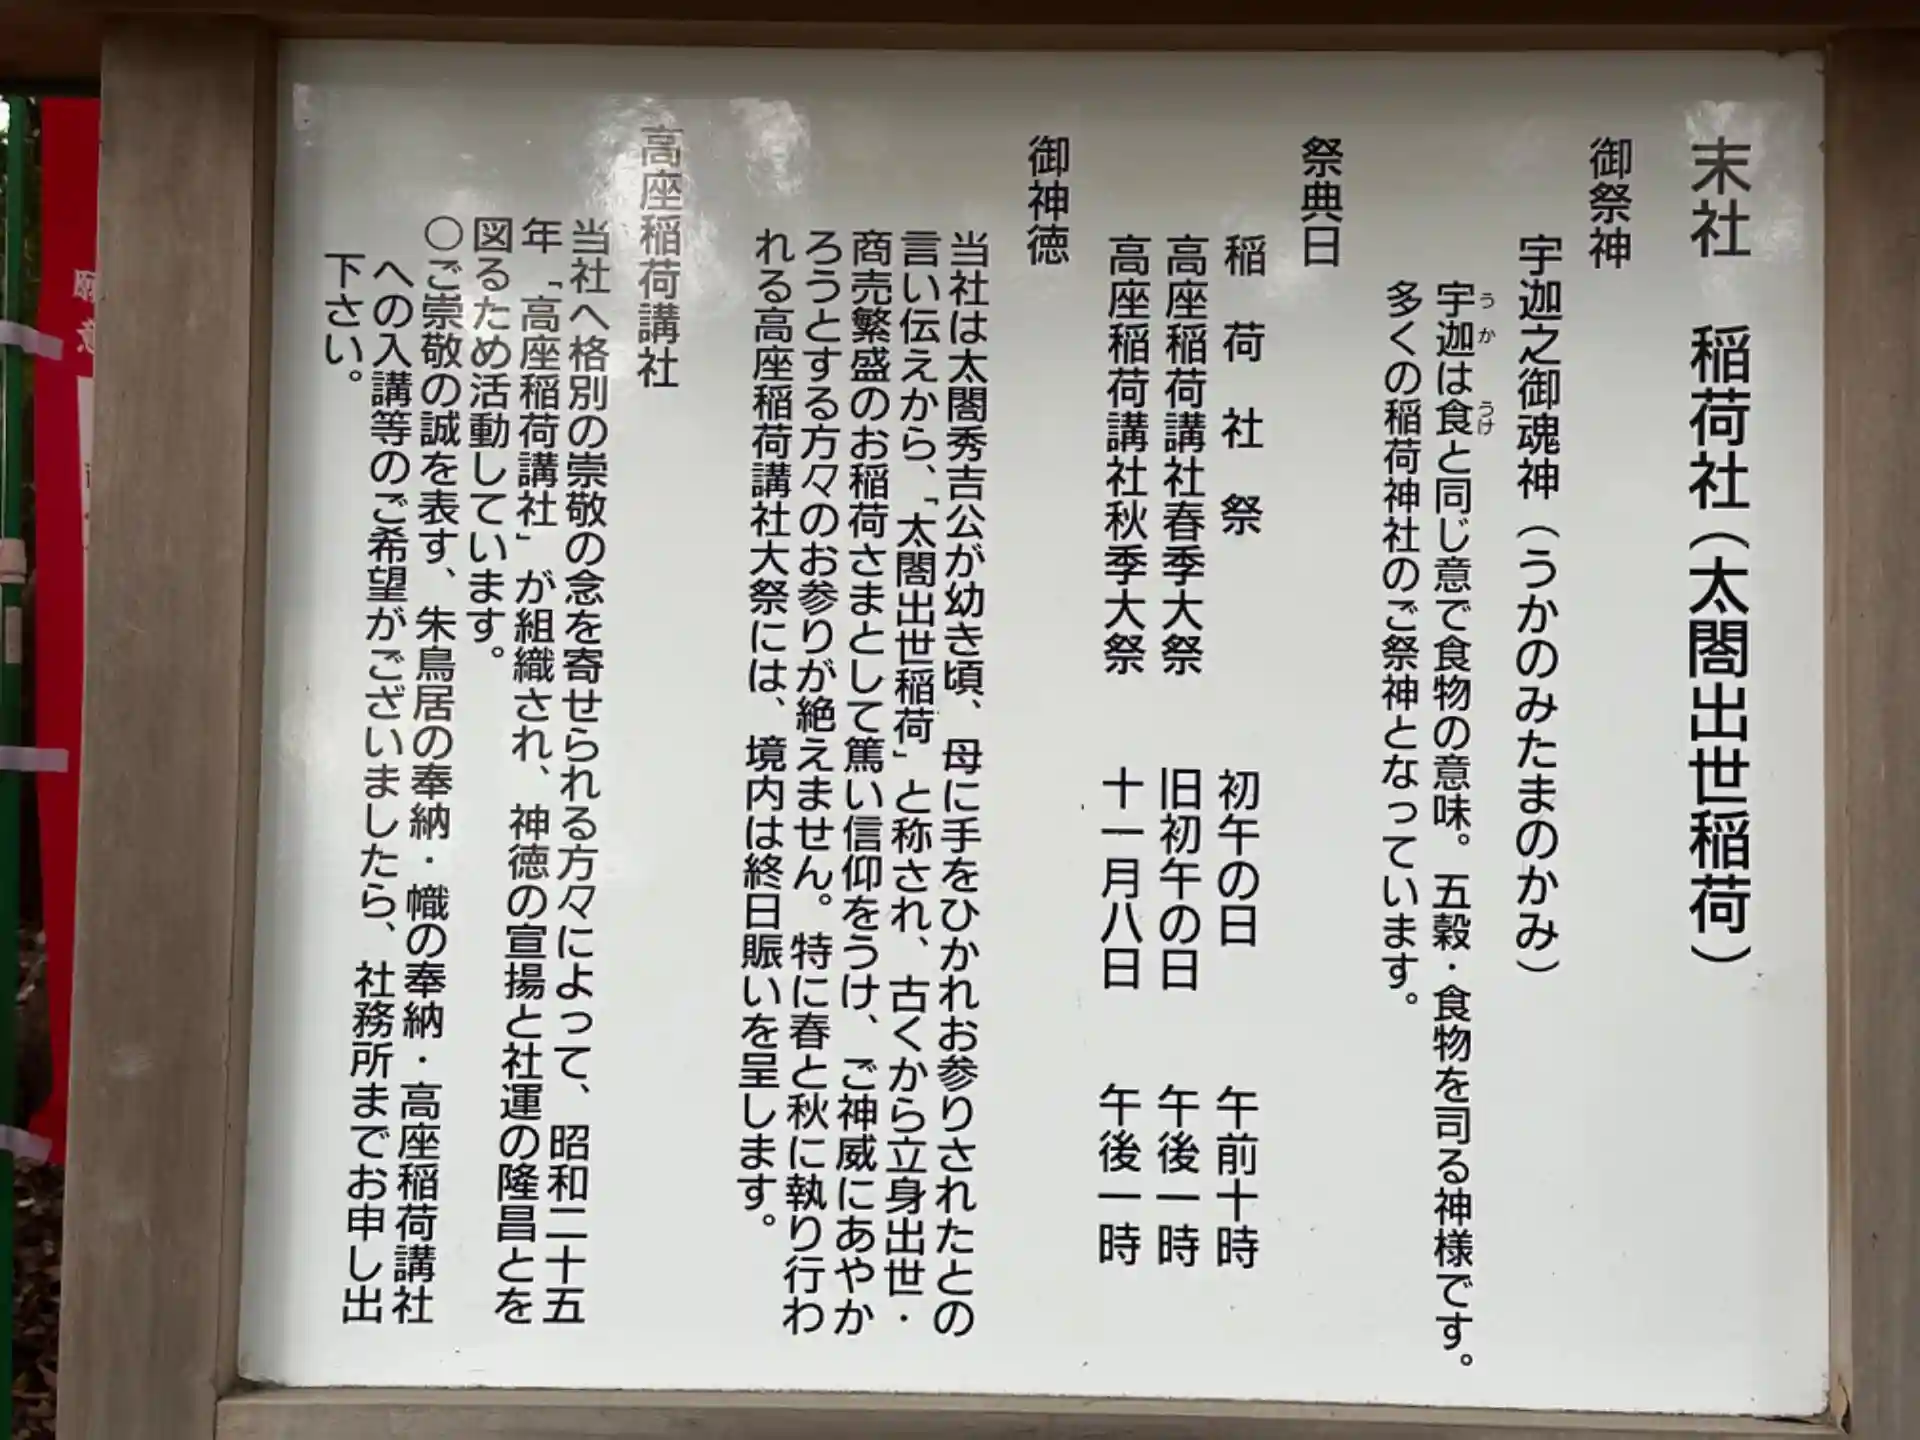 末社　稲荷社（太閤出世稲荷）
御祭神
宇迦之御魂神（うかのみたまのかみ）
宇迦は食と同じ意で食物の意味。五穀・食物を司る神様です。
うか　うけ
多くの稲荷神社のご祭神となっています。
祭典日
稲荷社祭　初午の日　午前十時
高座稲荷講社春季大祭　旧初午の日　午後一時
高座稲荷講社秋季大祭　十一月八日　午後一時
御神徳
当社は太閤秀吉公が幼き頃、母に手をひかれお参りされたとの
言い伝えから、「太閤出世稲荷」と称され、古くから立身出世・
商売繁盛のお稲荷さまとして篤い信仰をうけ、ご神威にあやか
ろうとする方々のお参りが絶えません。特に春と秋に執り行わ
れる高座稲荷講社大祭には、境内は終日賑いを呈します。
高座稲荷講社
当社へ格別の崇敬の念を寄せられる方々によって、昭和二十五
年「高座稲荷講社」が組織され、神徳の宣揚と社運の隆昌とを
図るため活動しています。
○ご崇敬の誠を表す、朱鳥居の奉納・幟の奉納・高座稲荷講社
への入講等のご希望がございましたら、社務所までお申し出
下さい。